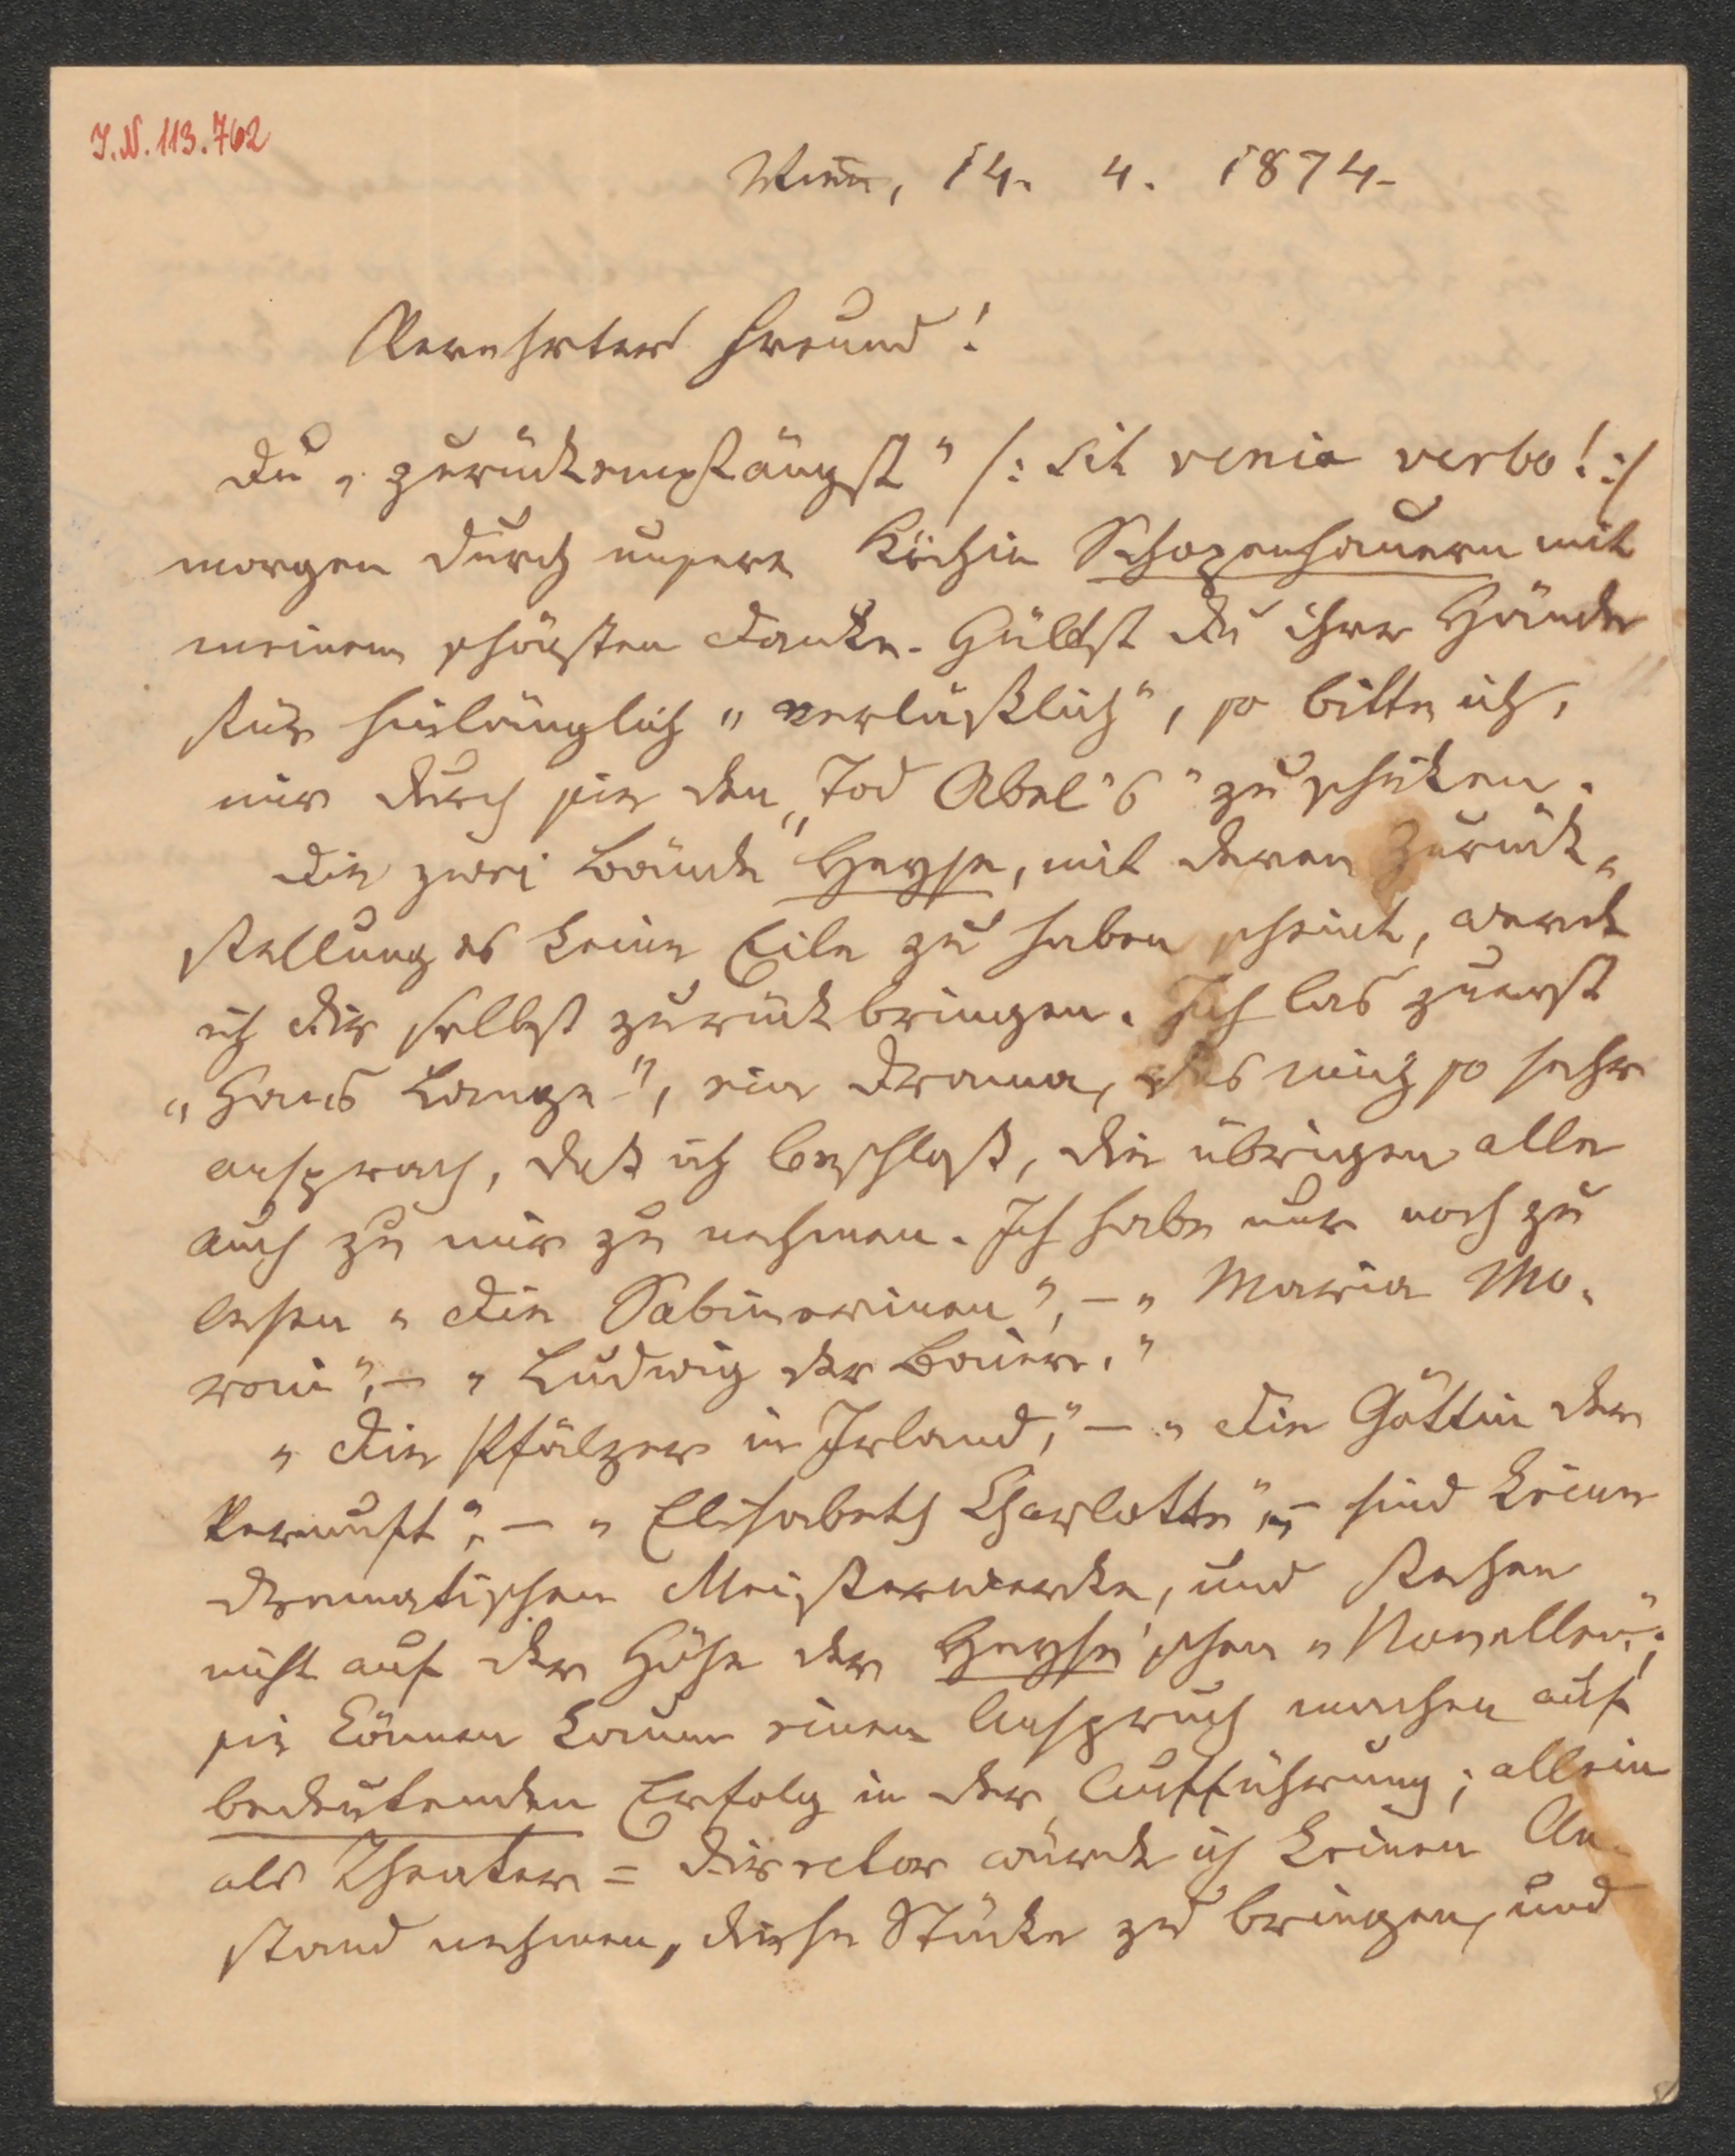 I.N. 113.762
Wien, 14. 4. 1874.
Verehrter Freund!
Du „zurückempfängst" /: sit venia verbo! :/
morgen durch unsere Köchin Schopenhauern mit
meinem schönsten Danke. Hältst Du ihre Hände
für hinlänglich „verläßlich", so bitte ich,
mir durch sie den „Tod Abel's" zu schicken.
Die zwei Bände Heyse, mit deren Zurück-
stellung es keine Eile zu haben scheint, werde
ich Dir selbst zurückbringen. Ich las zuerst
„Hans Lange", ein Drama, das mich so sehr
ansprach, daß ich beschloß, die übrigen alle
auch zu mir zu nehmen. Ich habe nur noch zu
lesen „Die Sabinerinen", – „Maria Mo-
roni", – „Ludwig der Baier."
„Die Pfälzer in Irland," – „Die Göttin der
Vernunft", – „Elisabeth Charlotte", – sind keine
dramatischen Meisterwerke, und stehen
nicht auf der Höhe der Heyse'schen „Novellen";
sie können kaum einen Anspruch machen auf
bedeutenden Erfolg in der Aufführung; allein
als Theater=Director würde ich keinen An-
stand nehmen, diese Stücke zu bringen, und